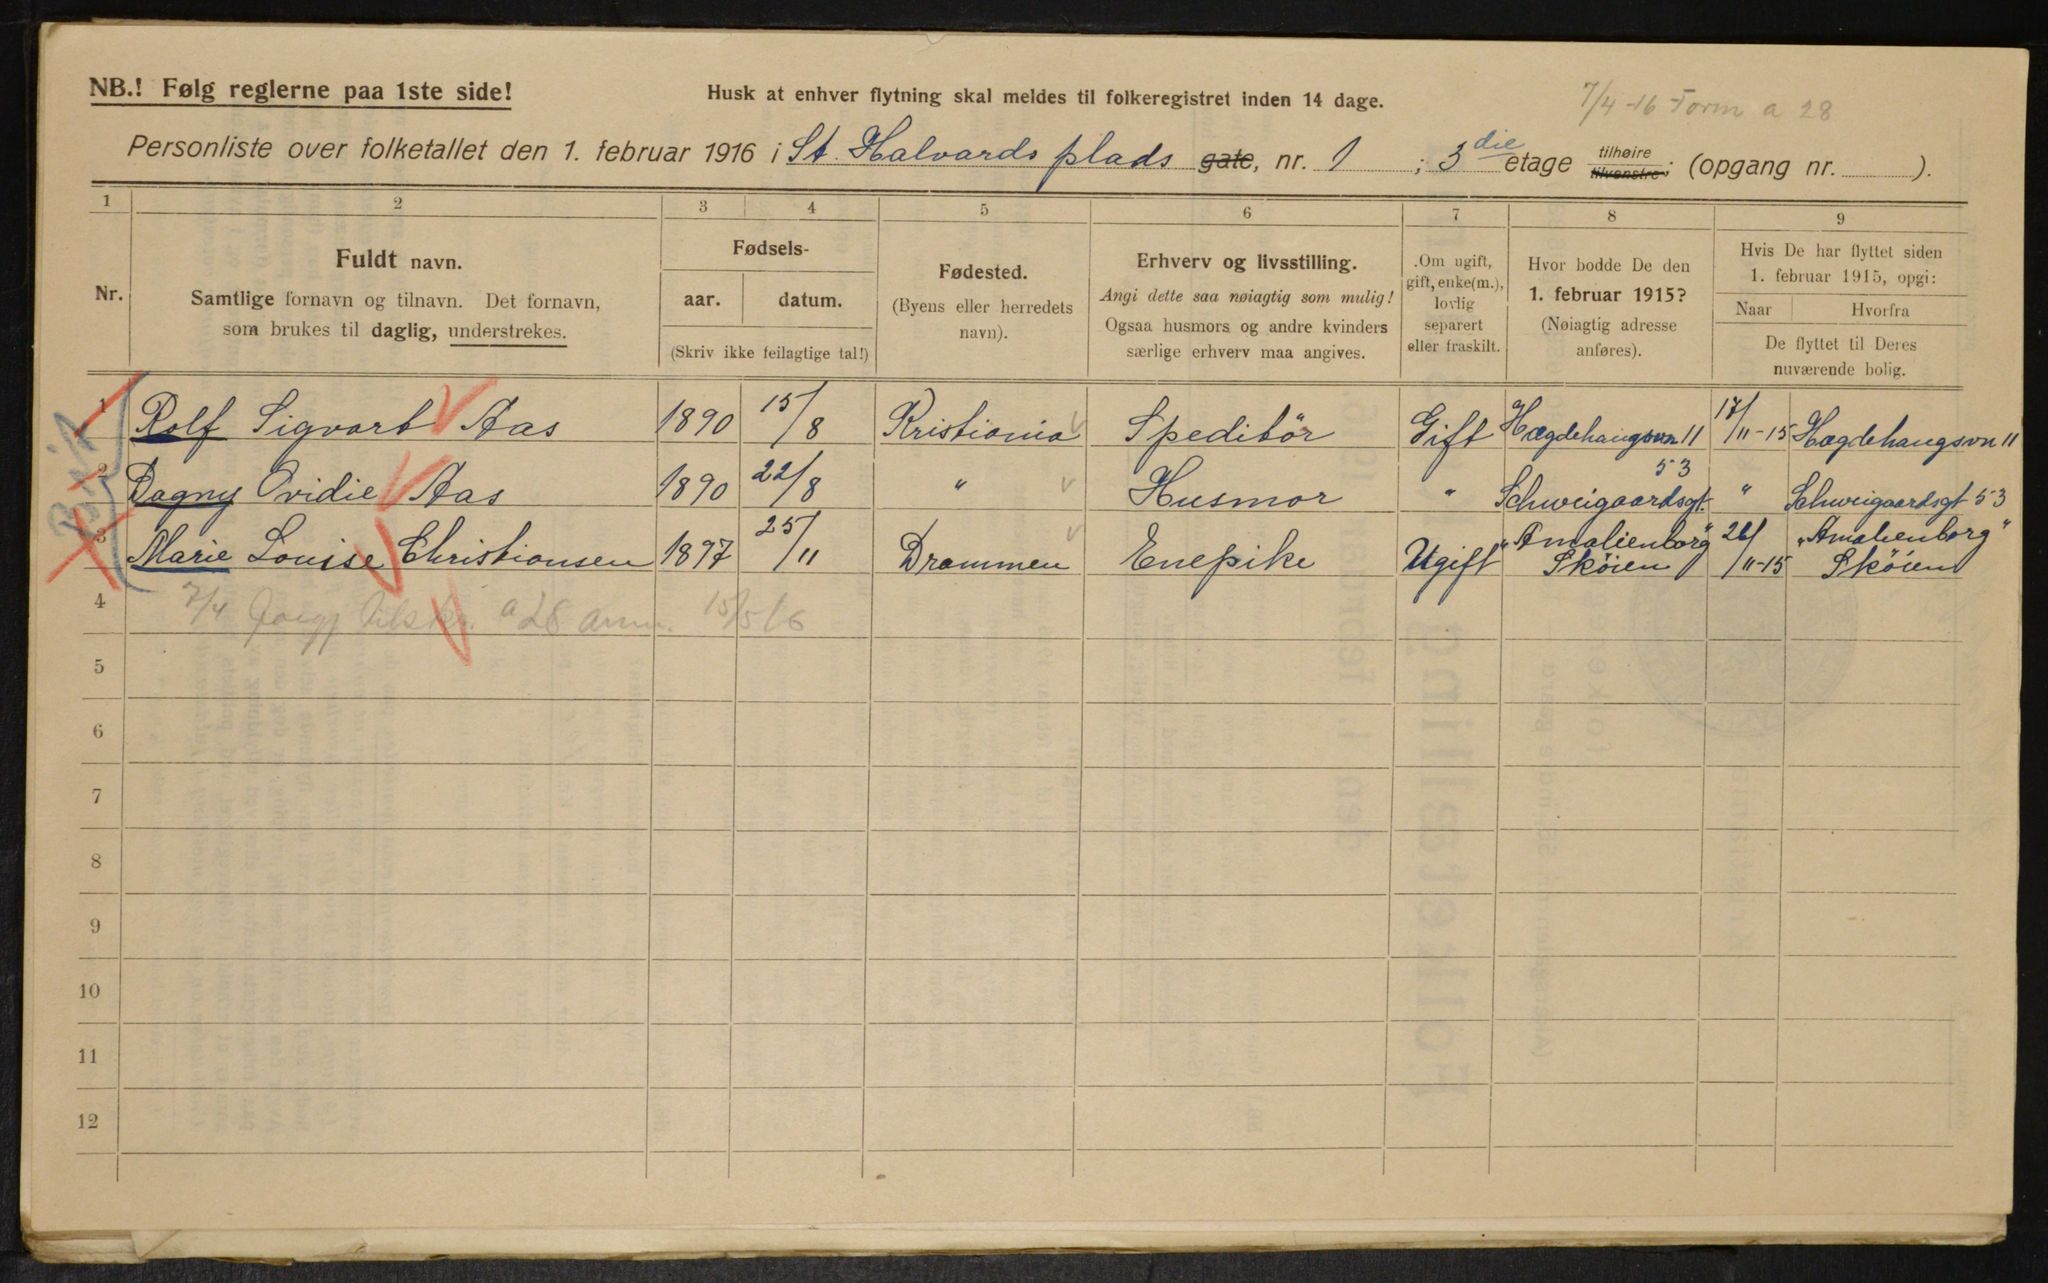 NB.! Følg reglerne paa 1ste side!
Husk at enhver flytning skal meldes til folkeregistret inden 14 dage.
7/4-16 Form a 28
Personliste over folketallet den 1. februar 1916 i St. Halvards plads gate, nr. 1 ; 3die etage tilhøire tilvenstre; (opgang nr. ).
1 2 3 4 5 6 7 8 9
Nr.
Fuldt navn.
Samtlige fornavn og tilnavn. Det fornavn,
som brukes til daglig, understrekes.
Fødsels-
aar. datum.
(Skriv ikke feilagtige tal!)
Fødested.
(Byens eller herredets
navn).
Erhverv og livsstilling.
Angi dette saa nøiagtig som mulig!
Ogsaa husmors og andre kvinders
særlige erhverv maa angives.
Om ugift,
gift, enke(m.),
lovlig
separert
eller fraskilt.
Hvor bodde De den
1. februar 1915?
(Nøiagtig adresse
anføres).
Hvis De har flyttet siden
1. februar 1915, opgi:
Naar Hvorfra
De flyttet til Deres
nuværende bolig.
1 Rolf Sigvart Aas 1890 15/8 Kristiania Speditör Gift Hægdehaugsvn 11 17/11-15 Hægdehaugsvn 11
2 Dagny Ovidie Aas 1890 22/8 " Husmor " Schweigaardsgt. 53 " Schweigaardsgt 53
3 Marie Louise Christiansen 1897 25/11 Drammen Enepike Ugift "Amalienborg" Skøien 26/11-15 "Amalienborg" Skøien
4 7/4 a 28 15/5 16
5
6
7
8
9
10
11
12